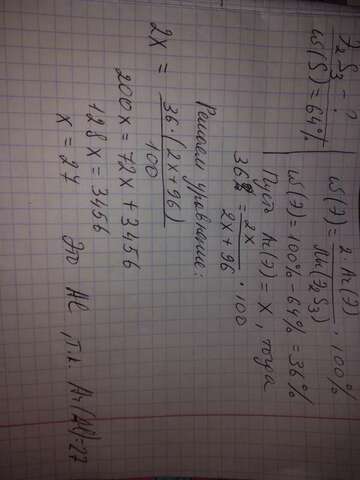 ?₂S₃ - ?
ω(S) = 64%
ω(?) = 2·Ar(?) / Mr(?₂S₃) · 100%
ω(?) = 100% - 64% = 36%
Пусть Ar(?) = x, тогда
36 = 2x / 2x + 96 · 100
Решаем уравнение:
2x = 36·(2x+96) / 100
200x = 72x + 3456
128x = 3456
x = 27 Это Al, т.к. Ar(Al)=27